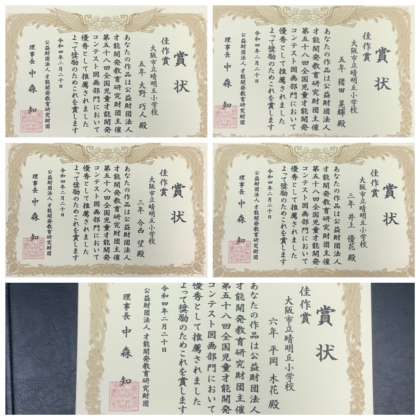 賞状
佳作賞
大阪市立晴明丘小学校
五年 大野 巧人 殿
あなたの作品は公益財団法人
才能開発教育研究財団主催
第五十八回全国児童才能開発
コンテスト図画部門において
優秀として推薦されました
よって奨励のためこれを賞します
令和四年二月二十日
公益財団法人 才能開発教育研究財団
理事長 中森 知
賞状
佳作賞
大阪市立晴明丘小学校
五年 殿
あなたの作品は公益財団法人
才能開発教育研究財団主催
第五十八回全国児童才能開発
コンテスト図画部門において
優秀として推薦されました
よって奨励のためこれを賞します
令和四年二月二十日
公益財団法人 才能開発教育研究財団
理事長 中森 知
賞状
佳作賞
大阪市立晴明丘小学校
望 殿
あなたの作品は公益財団法人
才能開発教育研究財団主催
第五十八回全国児童才能開発
コンテスト図画部門において
優秀として推薦されました
よって奨励のためこれを賞します
令和四年二月二十日
公益財団法人 才能開発教育研究財団
理事長 中森 知
賞状
佳作賞
大阪市立晴明丘小学校
井上 優花 殿
あなたの作品は公益財団法人
才能開発教育研究財団主催
第五十八回全国児童才能開発
コンテスト図画部門において
優秀として推薦されました
よって奨励のためこれを賞します
令和四年二月二十日
公益財団法人 才能開発教育研究財団
理事長 中森 知
賞状
佳作賞
大阪市立晴明丘小学校
六年 平岡 木花 殿
あなたの作品は公益財団法人
才能開発教育研究財団主催
第五十八回全国児童才能開発
コンテスト図画部門において
優秀として推薦されました
よって奨励のためこれを賞します
令和四年二月二十日
公益財団法人 才能開発教育研究財団
理事長 中森 知